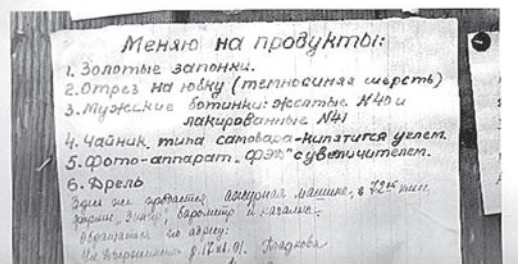 Меняю на продукты:
1. Золотые запонки.
2. Отрез на юбку (темносиняя шерсть)
3. Мужские ботинки: желтые №40 и
лакированные №41
4. Чайник типа самовара-кипятится углем.
5. Фото-аппарат „ФЭД" с увеличителем.
6. Дрель
Здесь же продается ажурная машина, в 72
фирмы „Зингер", барометр и
Обращаться по адресу:
Ул. Дзержинского д. 17 кв.